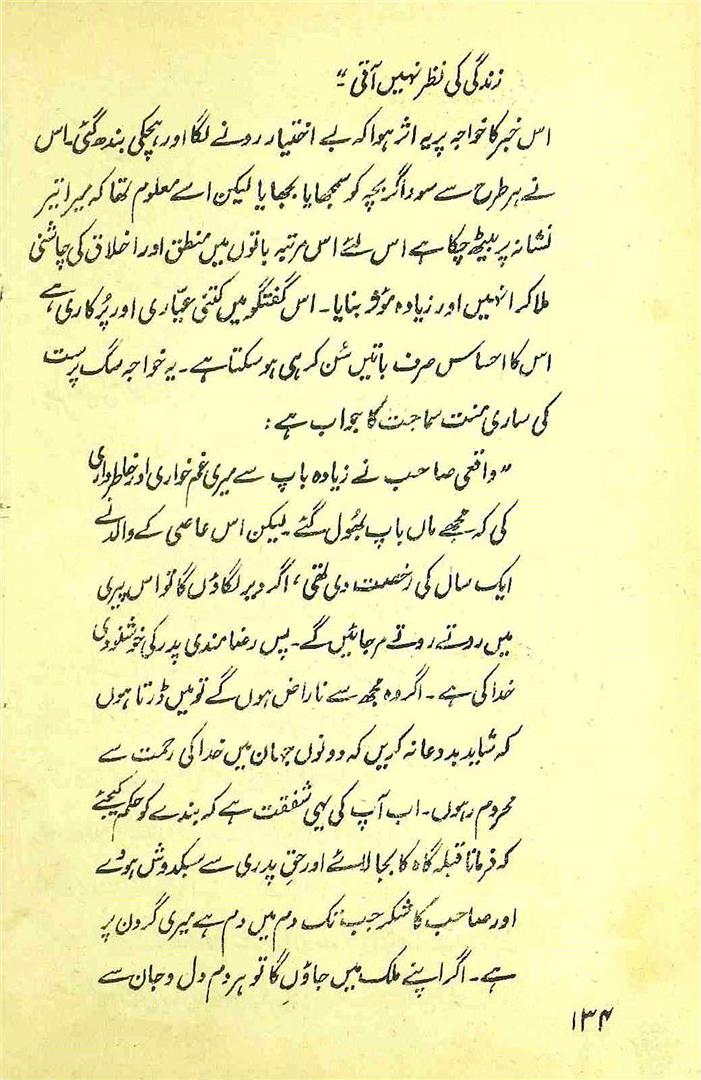 زندگی کی نظر نہیں آتی۔“
اس خبر کا خواجہ پر یہ اثر ہوا کہ بے اختیار رونے لگا اور ہچکی بندھ گئی۔ اس
نے ہر طرح سے سوداگر بچہ کو سمجھایا بجھایا لیکن اسے معلوم تھا کہ میرا تیر
نشانہ پر بیٹھ چکا ہے اس لئے اس مرتبہ باتوں میں منطق اور اخلاق کی چاشنی
ملا کر انہیں اور زیادہ مؤثر بنایا۔ اس گفتگو میں کتنی عیّاری اور پُرکاری ہے
اس کا احساس صرف باتیں سُن کر ہی ہو سکتا ہے۔ یہ خواجہ سگ پرست
کی ساری منت سماجت کا جواب ہے :
”واقعی صاحب نے زیادہ باپ سے میری غم خواری اور خاطر داری
کی کہ مجھے ماں باپ بھُول گئے۔ لیکن اس عاصی کے والد نے
ایک سال کی رخصت دی تھی، اگر دیر لگاؤں گا تو اس پیری
میں روتے روتے مر جائیں گے۔ پس رضامندی پدر کی خوشنودی
خدا کی ہے۔ اگر وہ مجھ سے ناراض ہوں گے تو میں ڈرتا ہوں
کہ شاید بد دعا نہ کریں کہ دونوں جہان میں خدا کی رحمت سے
محروم رہوں۔ اب آپ کی یہی شفقت ہے کہ بندے کو حکم کیجئے
کہ فرمانا قبلہ گاہ کا بجا لائے اور حقِ پدری سے سبکدوش ہووے
اور صاحب کا شکر جب تک دم میں دم ہے میری گردن پر
ہے۔ اگر اپنے ملک میں جاؤں گا تو ہر دم دل و جان سے
۱۳۴